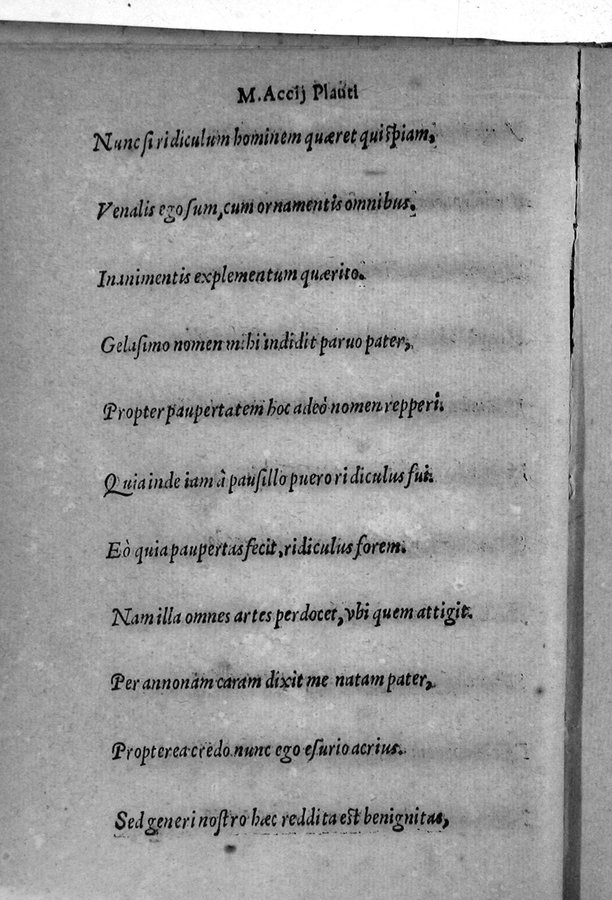 M. Accij Plauti
Nunc si ridiculum hominem quæret quispiam,
Venalis ego sum, cum ornamentis omnibus.
Inanimentis explementum quærito.
Gelasimo nomen mihi indidit paruo pater,
Propter paupertatem hoc adeò nomen repperi.
Quia inde iam à pausillo puero ridiculus fui.
Eò quia paupertas fecit, ridiculus forem.
Nam illa omnes artes perdocet, vbi quem attigit.
Per annonam caram dixit me natam pater,
Propterea credo nunc ego esurio acrius.
Sed generi nostro hæc reddita est benignitas,